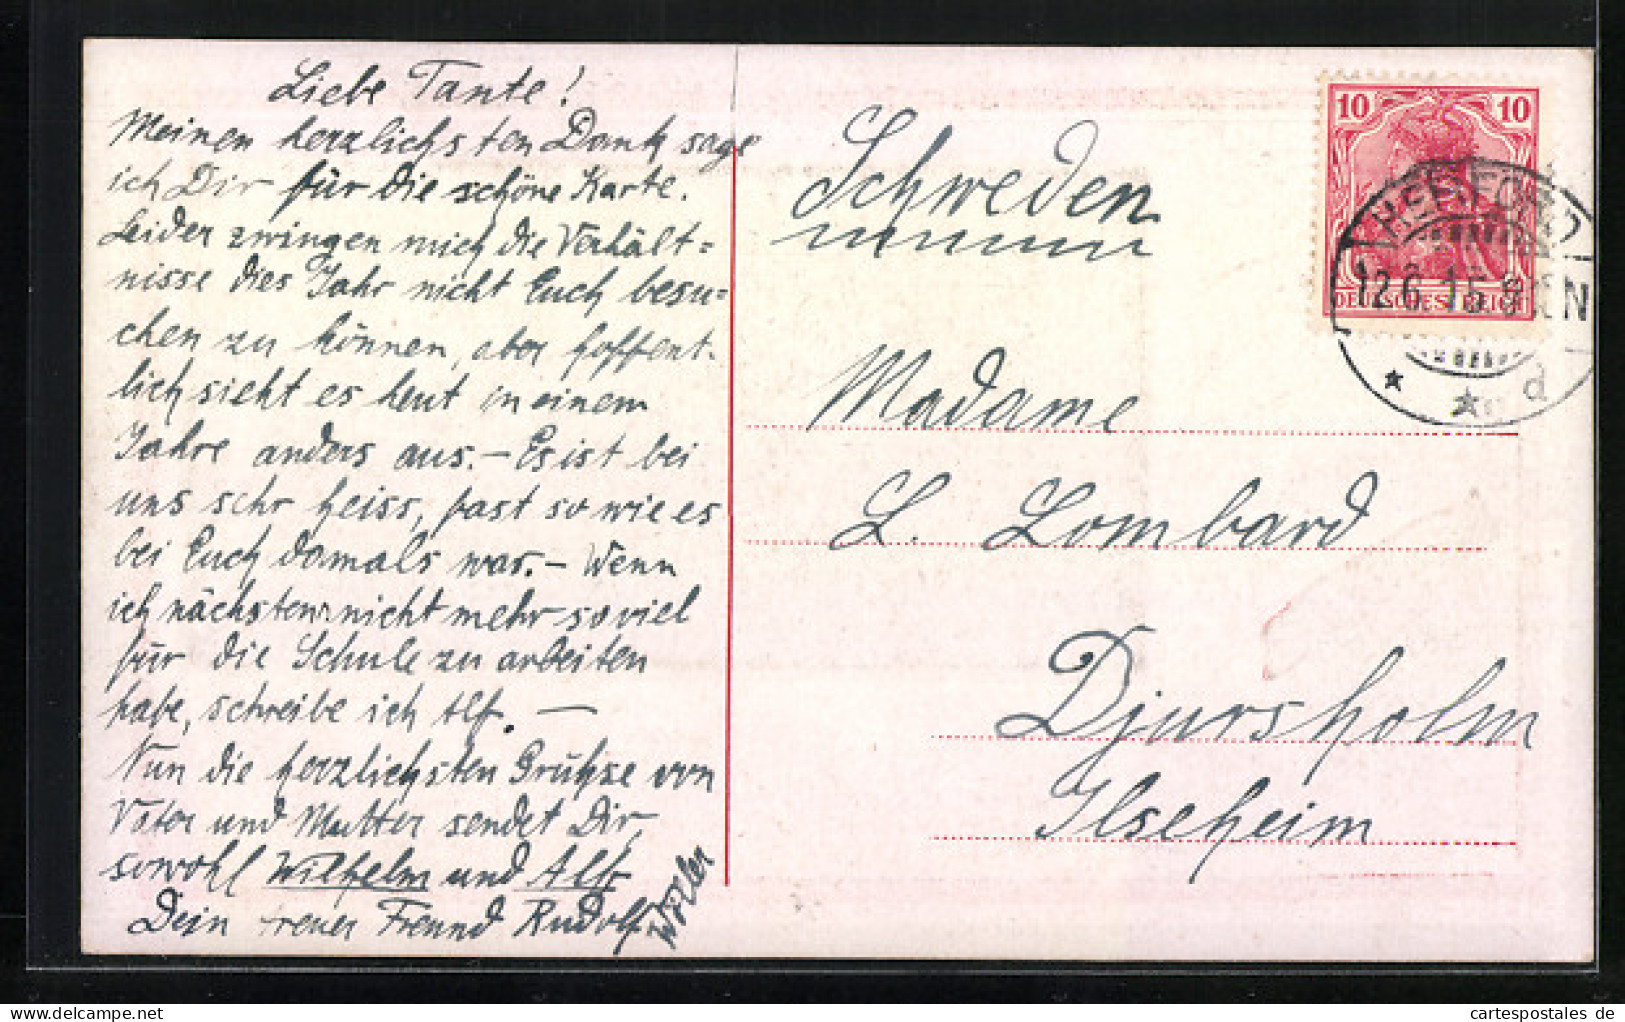 Liebe Tante!
Meinen herzlichsten Dank sage
ich Dir für die schöne Karte.
Leider zwingen mich die Verhält=
nisse dies Jahr nicht Euch besu=
chen zu können, aber hoffent-
lich sieht es heut in einem
Jahre anders aus. – Es ist bei
uns sehr heiss, fast so wie es
bei Euch damals war. – Wenn
ich nächstens nicht mehr so viel
für die Schule zu arbeiten
habe, schreibe ich Alf. —
Nun die herzlichsten Grühse von
Vater und Mutter sendet Dir,
sowohl Wilhelm und Alf
Dein treuer Freund Rudolf
Schweden
Madame
L. Lombard
Djursholm
Ilseheim
10 10
DEUTSCHES REICH
HERFORD
12.6.15.9 N
* * d
www.cartespostales.de